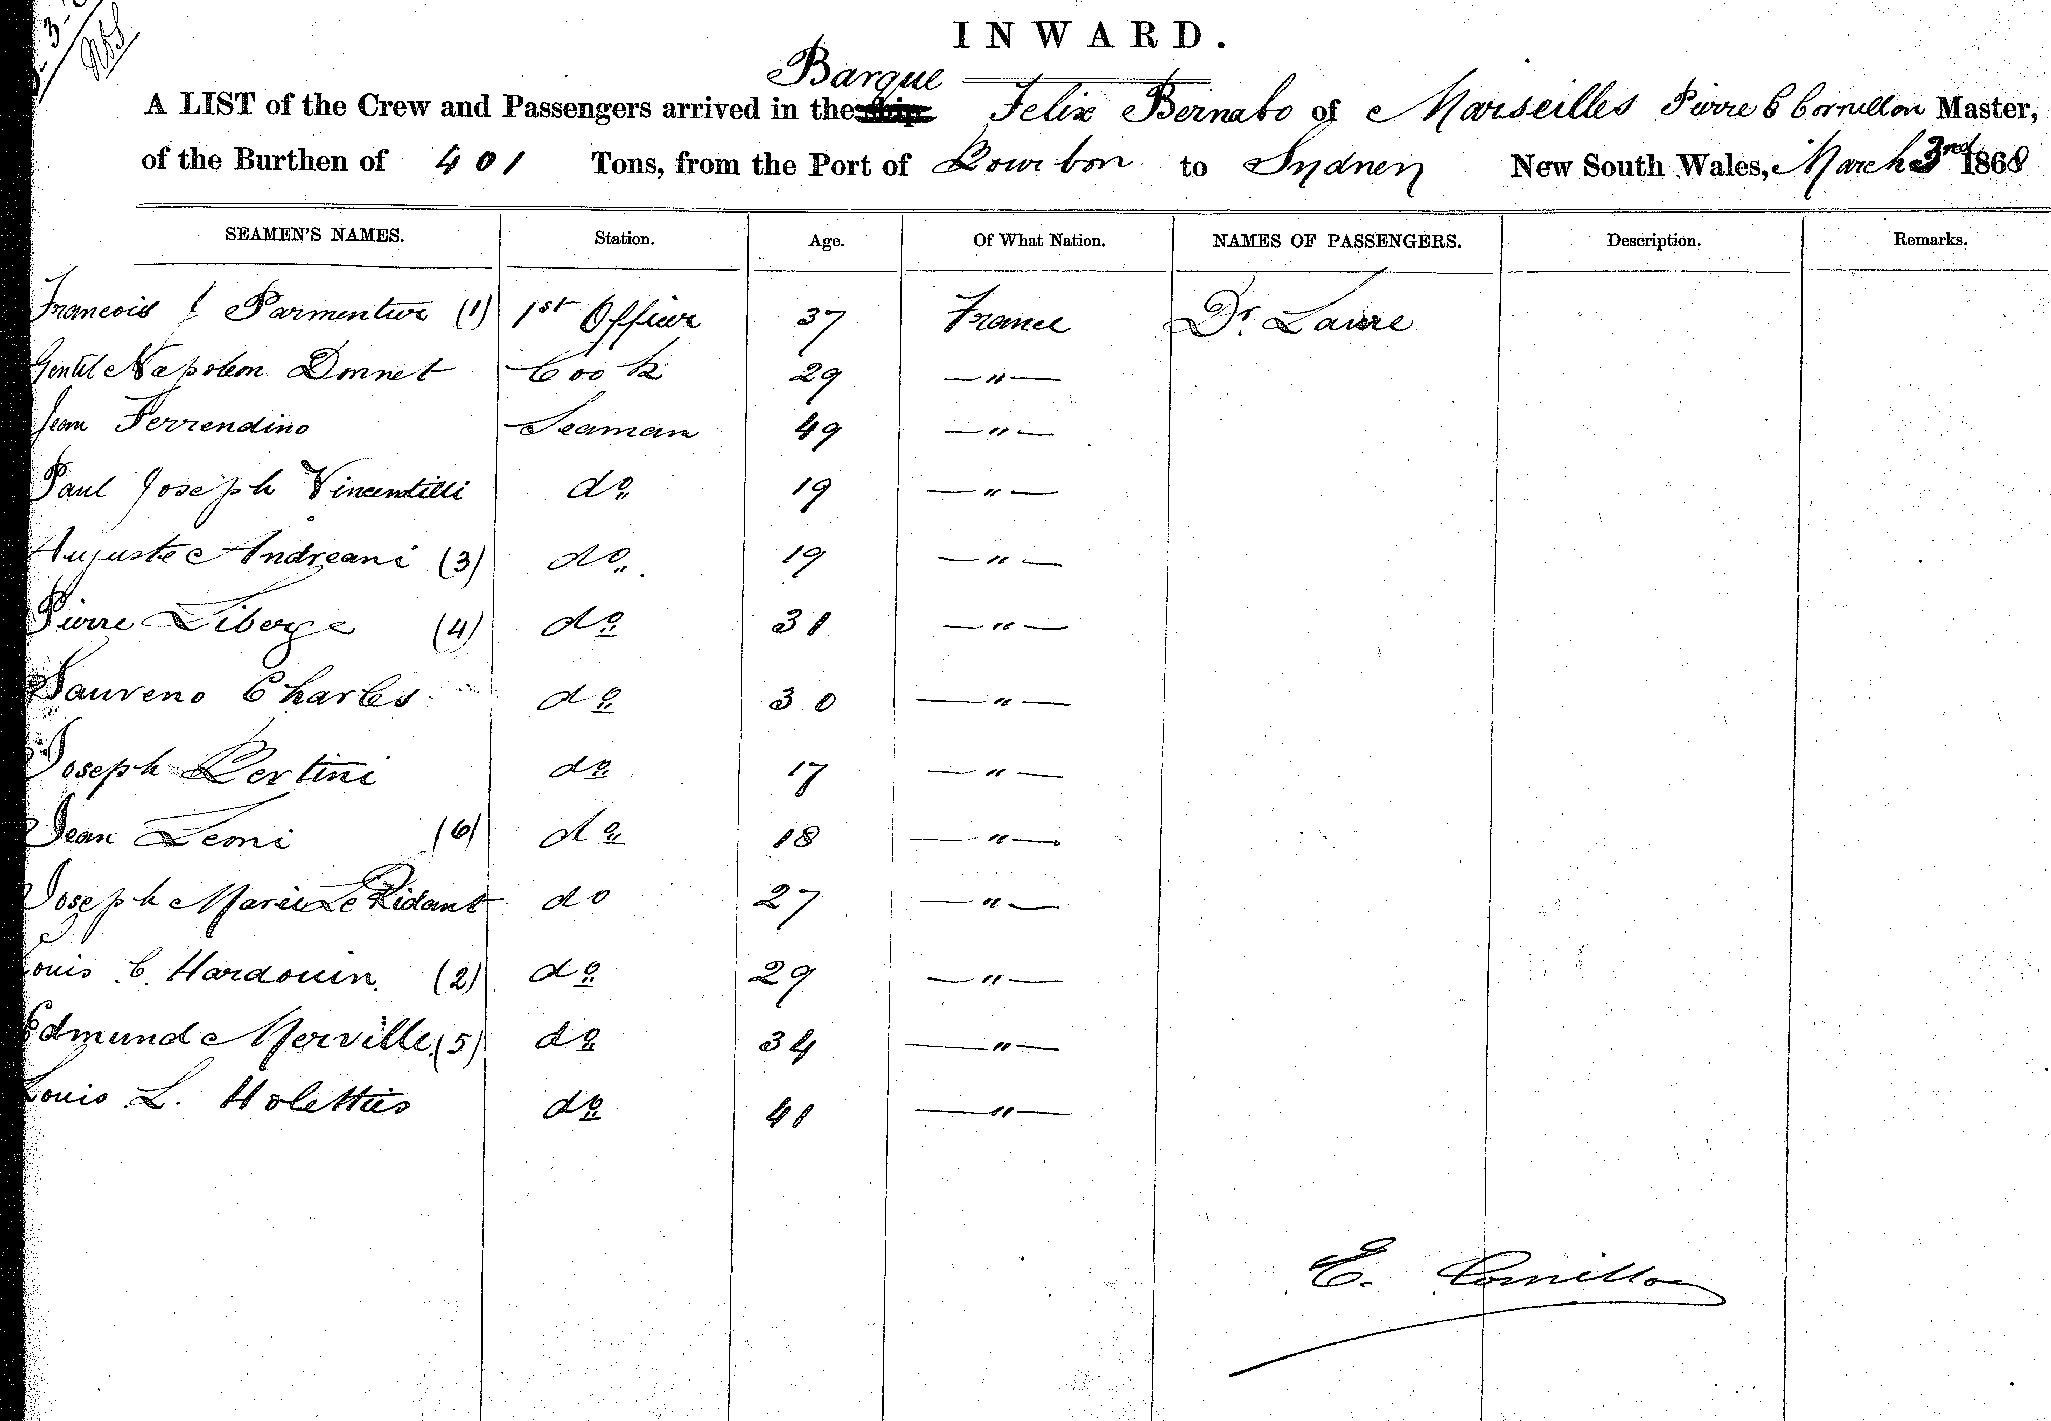 INWARD.
Barque
A LIST of the Crew and Passengers arrived in the ship Felix Bernabo of Marseilles Pierre E Cornillon Master,
of the Burthen of 401 Tons, from the Port of Bourbon to Sydney New South Wales, March 3rd 1868
SEAMEN'S NAMES. Station. Age. Of What Nation. NAMES OF PASSENGERS. Description. Remarks.
Francois J Parmentier (1) 1st Officer 37 France Dr. Laure
Gentil Napoleon Donnet Cook 29 — " —
Jean Ferrendino Seaman 49 — " —
Paul Joseph Vincentilli do 19 — " —
Auguste Andreani (3) do 19 — " —
Pierre Liberge (4) do 31 — " —
Saureno Charles do 30 — " —
Joseph Bertini do 17 — " —
Jean Leoni (6) do 18 — " —
Joseph Marie Le Ridant do 27 — " —
Louis C. Hardouin (2) do 29 — " —
Edmund Merville (5) do 34 — " —
Louis L. do 41 — " —
E. Cornillon